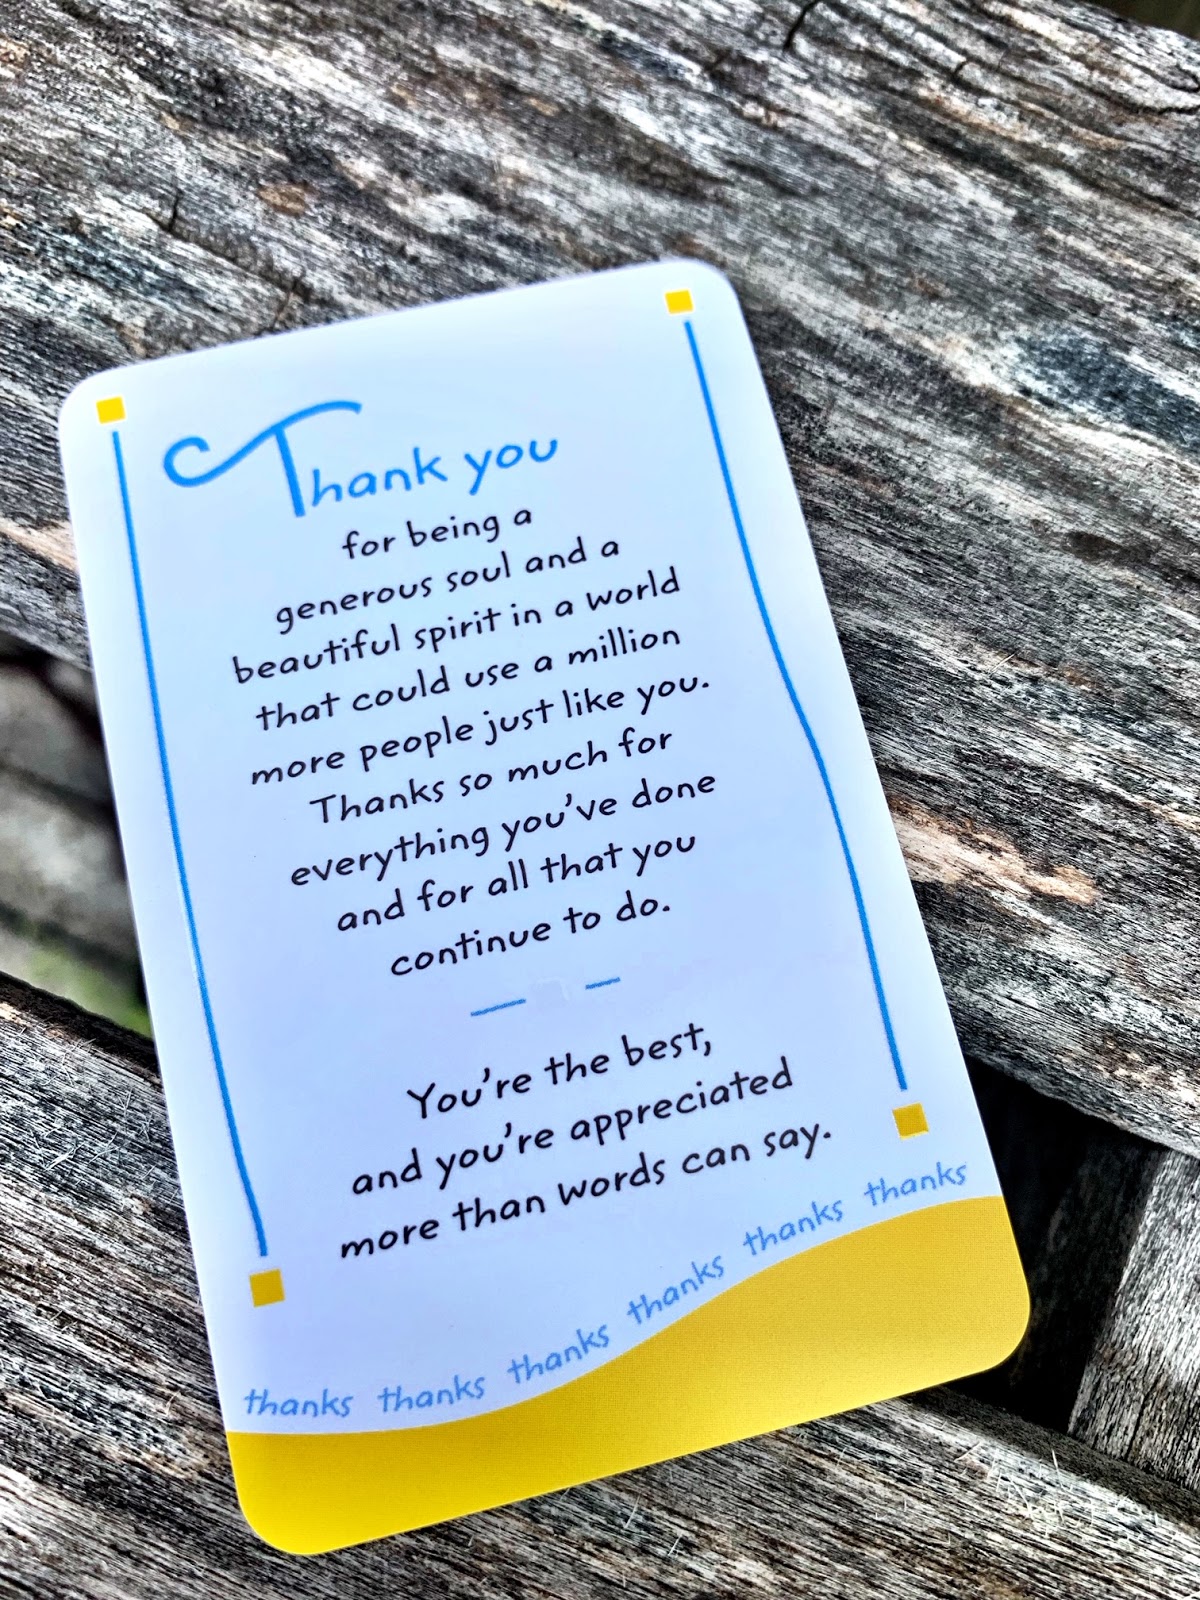 Thank you
for being a
generous soul and a
beautiful spirit in a world
that could use a million
more people just like you.
Thanks so much for
everything you've done
and for all that you
continue to do.
You're the best,
and you're appreciated
more than words can say.
thanks thanks thanks thanks thanks thanks